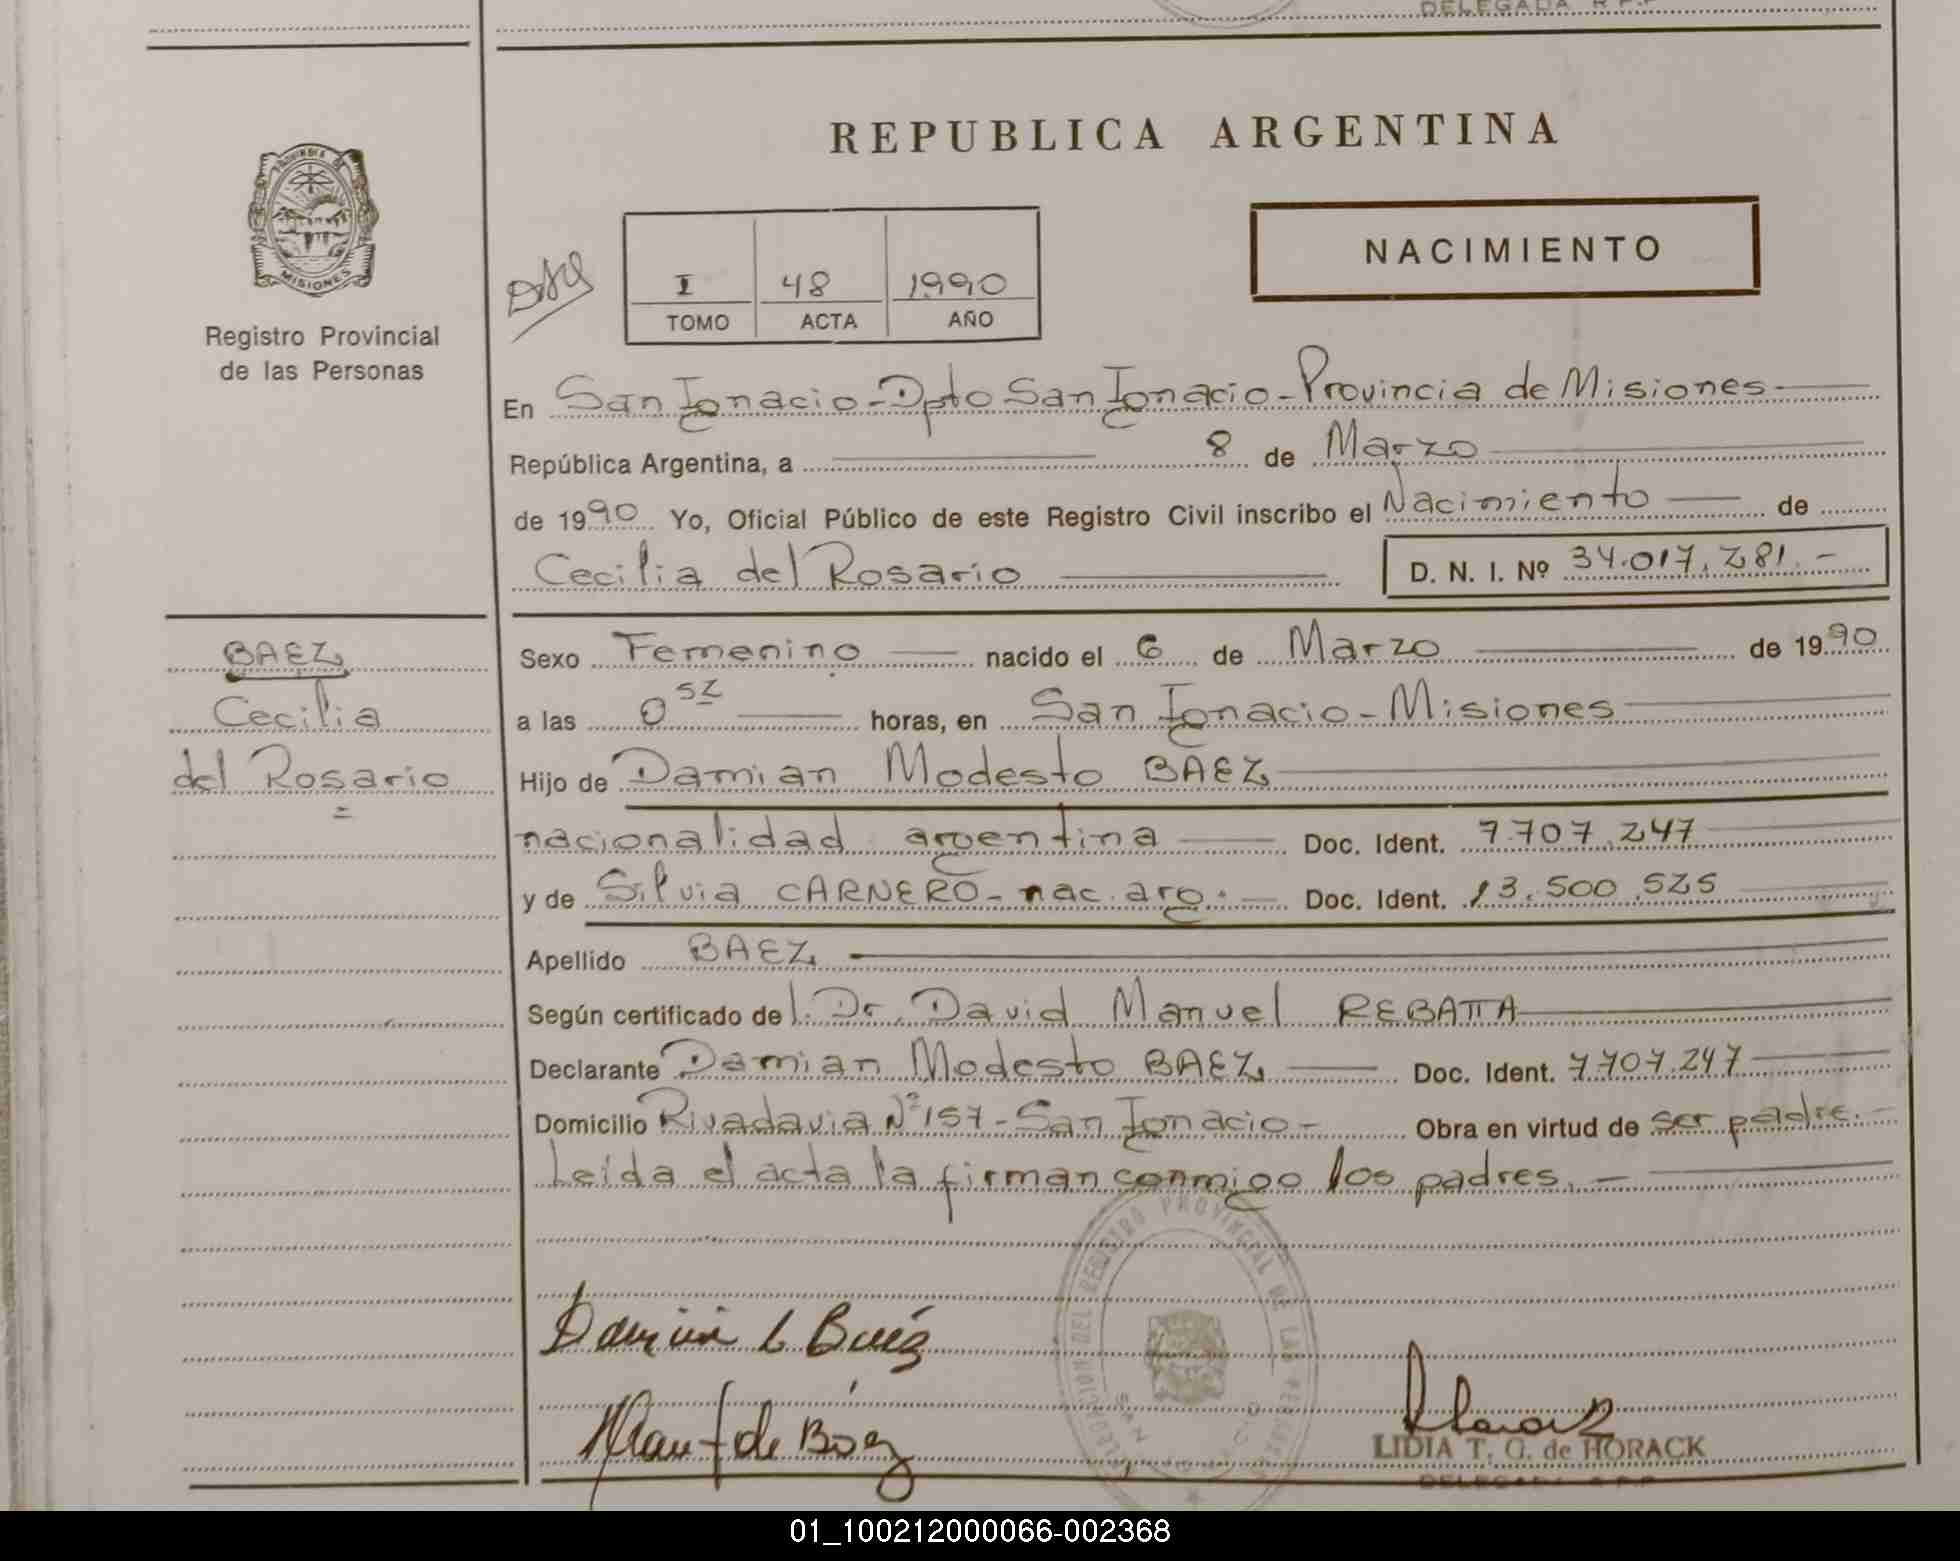 DELEGADA R.P.P
REPUBLICA ARGENTINA
PROVINCIA DE
MISIONES
Registro Provincial
de las Personas
I 48 1990
TOMO ACTA AÑO
NACIMIENTO
En San Ignacio - Dpto San Ignacio - Provincia de Misiones
República Argentina, a 8 de Marzo
de 1990 Yo, Oficial Público de este Registro Civil inscribo el Nacimiento de
Cecilia del Rosario D. N. I. Nº 34.017.281.-
BAEZ
Cecilia
del Rosario
Sexo Femenino nacido el 6 de Marzo de 1990
a las 0 52 horas, en San Ignacio - Misiones
Hijo de Damian Modesto BAEZ
nacionalidad argentina Doc. Ident. 7.707.247
y de Silvia CARNERO - nac. arg. Doc. Ident. 13.500.525
Apellido BAEZ
Según certificado de l. Dr. David Manuel REBATTA
Declarante Damian Modesto BAEZ Doc. Ident. 7.707.247
Domicilio Rivadavia Nº 157 - San Ignacio - Obra en virtud de ser padre.-
Leída el acta la firman conmigo los padres.-
DELEGACION DEL REGISTRO PROVINCIAL DE LAS PERSONAS
SAN IGNACIO
de Báez
LIDIA T. G. de HORACK
DELEGADA R.P.P
01_100212000066-002368